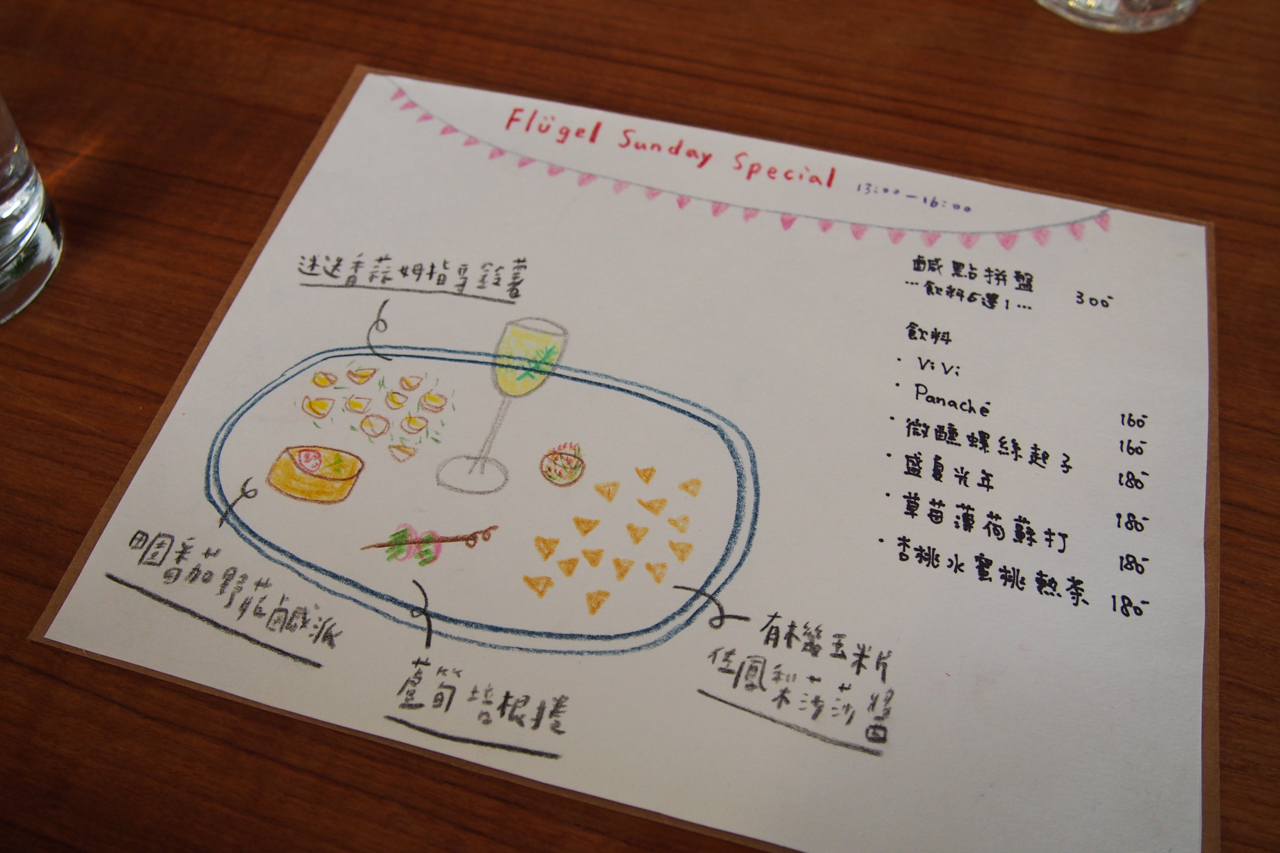 Flügel Sunday Special 13:00-16:00
鹹點拼盤 300
…飲料6選1…
飲料
· ViVi 160
· Panaché 160
· 微醺螺絲起子 180
· 盛夏光年 180
· 草莓薄荷蘇打 180
· 杏桃水蜜桃熱茶 180
迷迭香蒜姆指馬鈴薯
田園番加野菇鹹派
蘆筍培根捲
有機玉米片
佐鳳梨莎莎醬